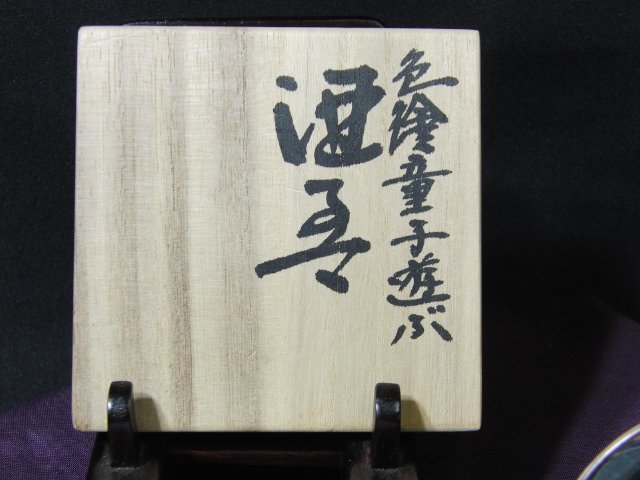 色繪童子遊ぶ
酒呑